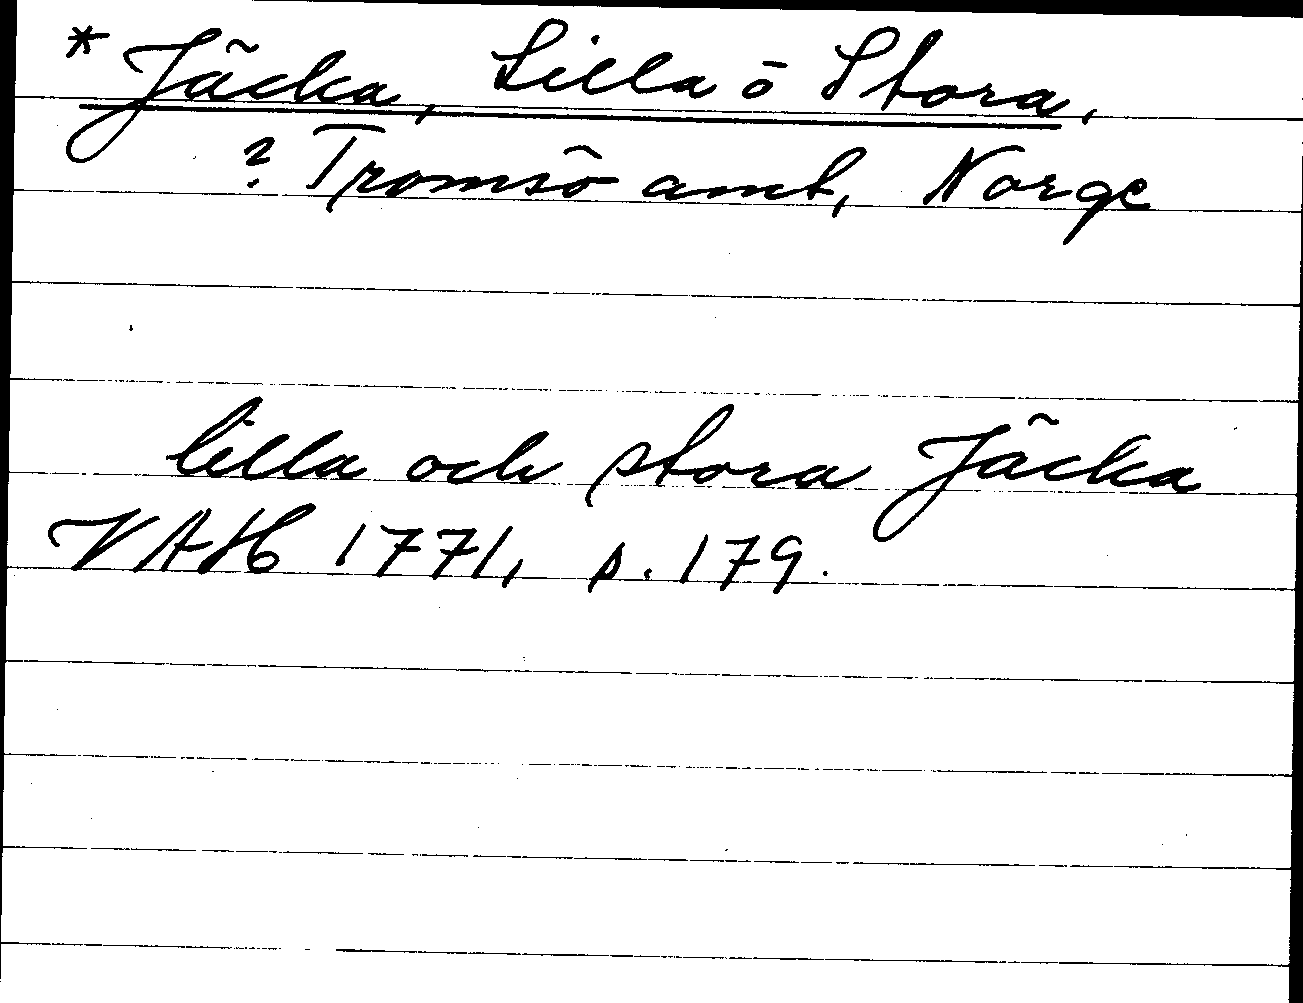 * Jäcka, Lilla o Stora,
? Tromsö amt, Norge
lilla och stora Jäcka
VAH 1771, s. 179.